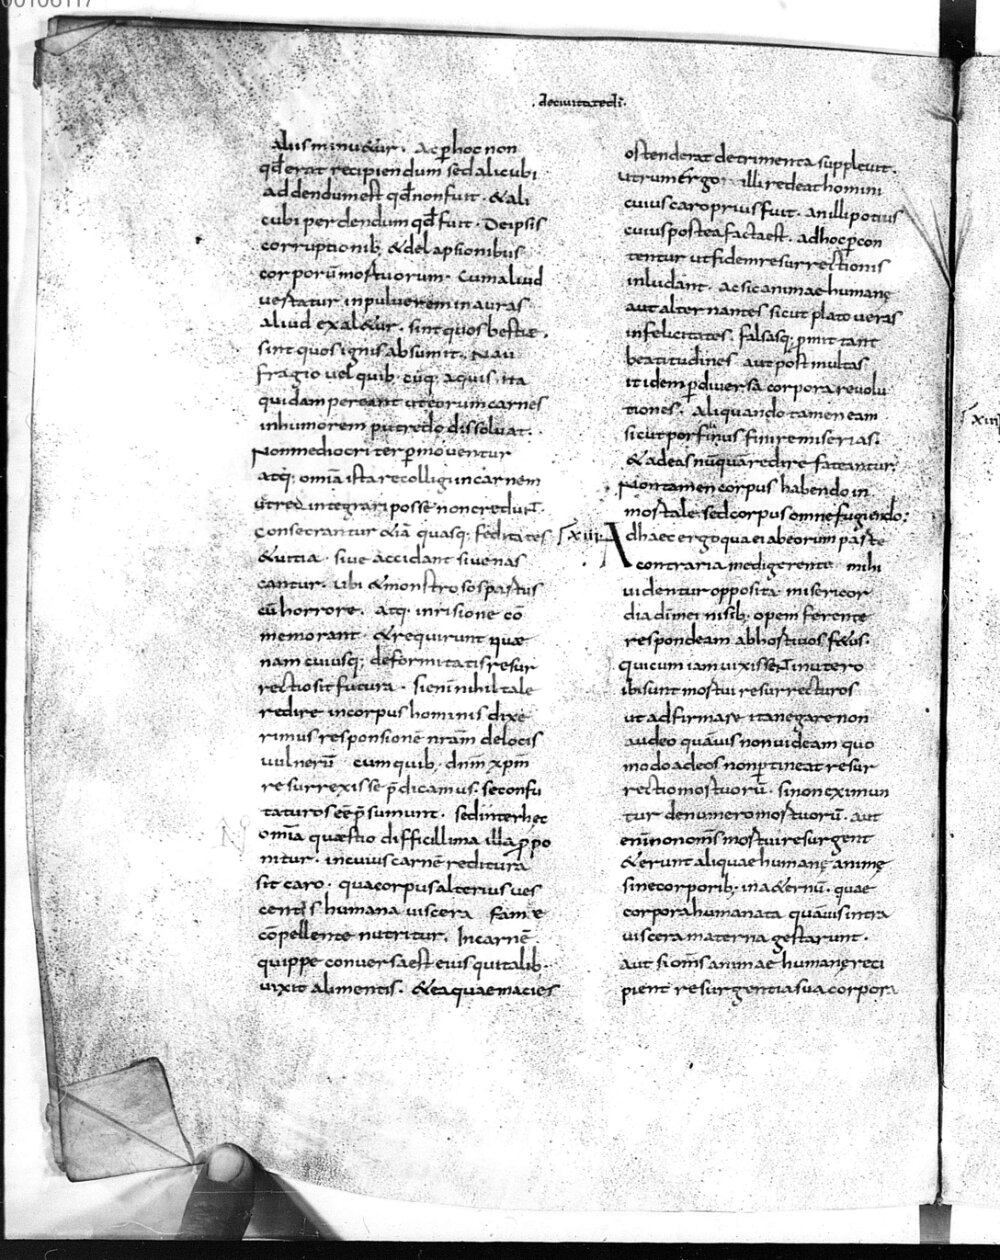 00106117
. deciuitatedi .
aliis minu&ur . Ac phoc non
qd erat recipiendum sed alicubi
addendum est qd non fuit . & ali
cubi perdendum qd fuit . Deipsis
corruptionib; & delapsionibus
corporū mortuorum . Cum aliud
uertatur inpuluerem inauras
aliud exal&ur . sint quos bestiæ .
sint quos ignis absumit . Nau
fragio uel quib; cūq; aquis . ita
quidam pereant ut eorum carnes
inhumorem putredo dissoluat .
Non mediocriter pmouentur
atq; omīa ista recolligi incarnem
& redintegrari posse non credunt .
Consectantur &iā quasq; feditates
& uitia . siue accidant siue nas
cantur . ubi & monstrosos partus
cū horrore . atq; inrisione cō
memorant . & requirunt quæ
nam cuiusq; deformitatis resur
rectio sit futura . Si enī nihil tale
redire incorpus hominis dixe
rimus responsionē nr̄am delocis
uulnerū cum quib; dn̄m xp̄m
resurrexisse p̄dicamus . se confu
taturos eē p̄sumunt . Sed inter hec
omīa quæstio difficillima illa ppo
nitur . incuius carnē reditura
sit caro . qua corpus alterius ues
centis humana uiscera fame
cōpellente nutritur . Incarnē
quippe conuersa est eius qui talib;
uixit alimentis . & ea quae macies
ostenderat detrimenta suppleuit .
utrum ergo illi redeat homini
cuius caro prius fuit . an illi potius
cuius postea facta est . ad hoc pcon
tentur ut fidem resurrectionis
inludant . ac sic animae humanę
aut alternantes sicut plato ueras
infelicitates . falsasq; pmittant
beatitudines aut post multas
itidem p diuersa corpora reuolu
tiones . aliquando tamen eam
sicut porfirius finire miserias .
& ad eas nūquā redire fateantur .
Non tamen corpus habendo in
mortale . sed corpus omne fugiendo ;
xiii Ad haec ergo quae ab eorum parte
contraria me digerente mihi
uidentur opposita misericor
dia dī mei nisib; opem ferente
respondeam abhortiuos f&us .
qui cum iam uixissent inutero
ibi sunt mortui resurrecturos
ut adfirmare ita negare non
audeo quāuis non uideam quo
modo ad eos non ptineat resur
rectio mortuorū . si non eximun
tur de numero mortuorū . aut
enī non om̄s mortui resurgent
& erunt aliquae humanę animę
sine corporib; in a&ernū . quae
corpora humana ta quāuis intra
uiscera materna gestarunt .
aut si om̄s animae humanę reci
pient resurgentia sua corpora
xiii